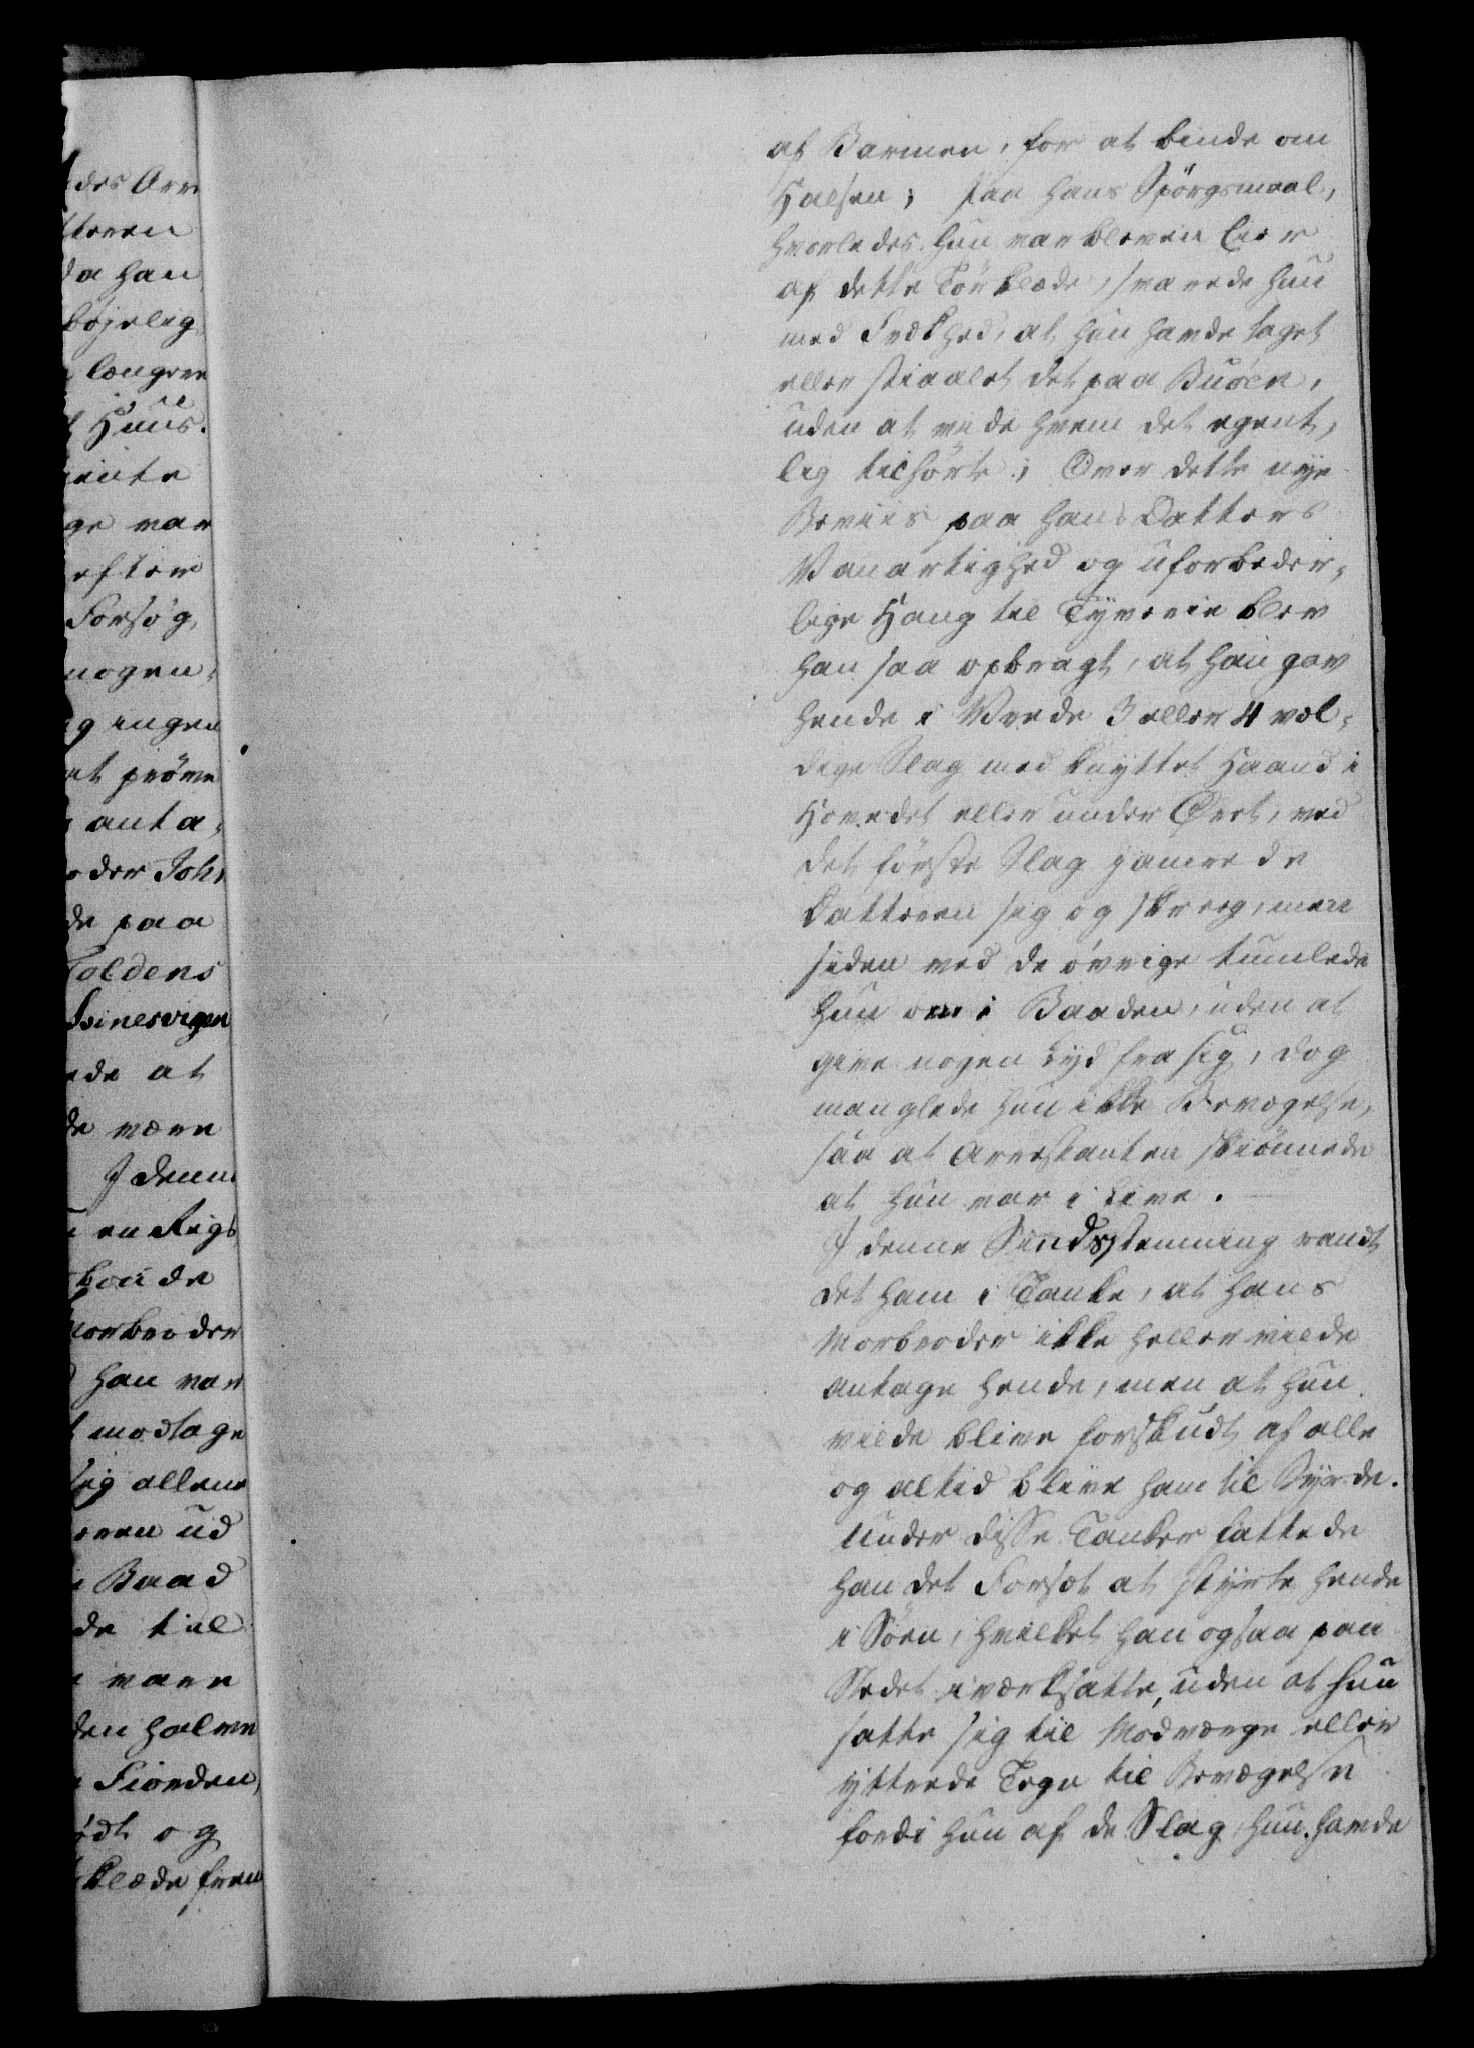 des Arr
tteren
da han
böjelig
længere
t Huus.
iente
ge var
efter
Forsög
nogen,
g ingen
at pröve
anta,
der Joh,
de paa
Toldens
Svinesvigen
ede at
de være
I denne
en Rigs
boede
Morbroder
han var
modtage
sig allene
eren ud
Baad
de til
vare
den halve
Fiorden,
ödt og
klæde frem
af Barmen, for at binde om
Halsen; paa hans Spörgsmaal,
hvorledes hun var bleven Eier
af dette Törklæde, svarede hun
med Frækhed, at hun havde taget
eller stiaalet det paa Buöen,
uden at vide hvem det egent,
lig tilhörte; Over dette nye
Beviis paa hans Datters
Vanartighed og uforbeder,
lige Hang til Tyverie blev
han saa opbragt, at han gav
hende i Vrede 3 eller 4 væl,
dige Slag med knyttet Haand i
Hovedet eller under Øret, ved
det förste Slag jamrede
Datteren sig og skreeg, men
siden ved de övrige tumlede
hun om i Baaden, uden at
give nogen Lyd fra sig, dog
manglede hun ikke Bevægelse,
saa at Arrestanten skiönnede
at hun var i Live.
I denne Sindsstemning randt
det ham i Tanke, at hans
Morbroder ikke heller vilde
antage hende, men at hun
vilde blive forskudt af alle
og altid blive ham til Byrde.
Under disse Tanker fattede
han det Forsæt at styrte hende
i Söen, hvilket han ogsaa paa
Stedet iværksatte, uden at hun
satte sig til Modværge eller
yttrede Tegn til Bevægelse
fordi hun af de Slag hun havde